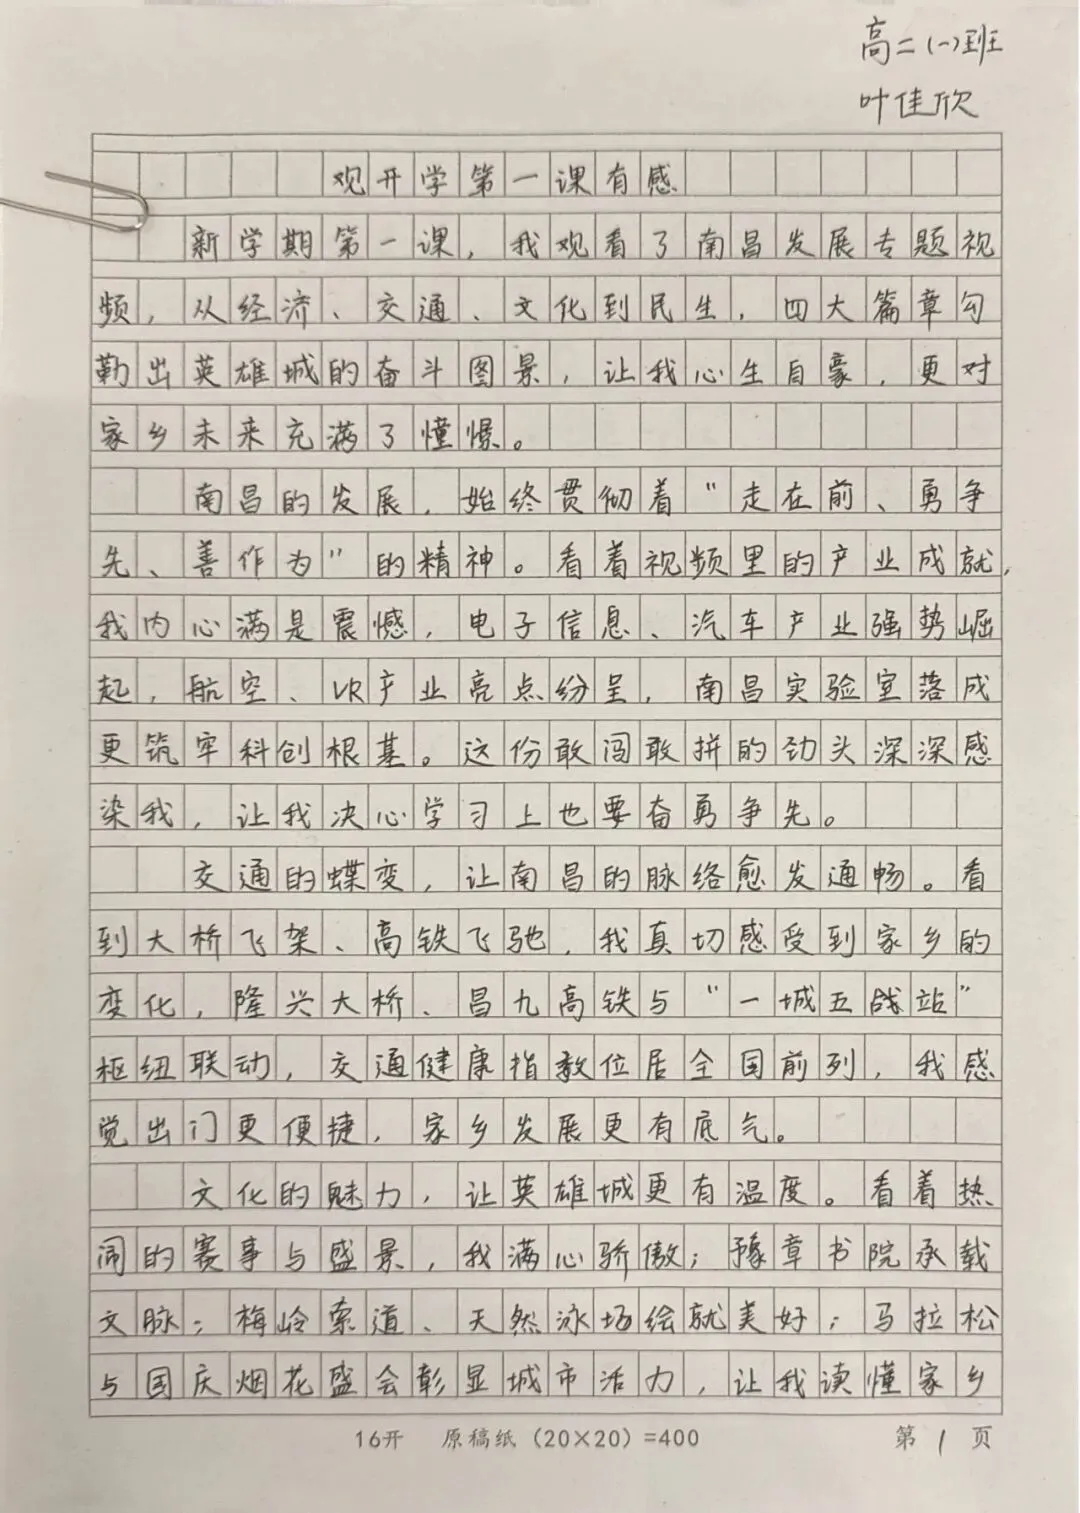 高二(一)班
叶佳欣
观开学第一课有感
新学期第一课，我观看了南昌发展专题视
频，从经济、交通、文化到民生，四大篇章勾
勒出英雄城的奋斗图景，让我心生自豪，更对
家乡未来充满了憧憬。
南昌的发展，始终贯彻着“走在前、勇争
先、善作为”的精神。看着视频里的产业成就，
我内心满是震憾，电子信息、汽车产业强势崛
起，航空、VR产业亮点纷呈，南昌实验室落成
更筑牢科创根基。这份敢闯敢拼的劲头深深感
染我，让我决心学习上也要奋勇争先。
交通的蝶变，让南昌的脉络愈发通畅。看
到大桥飞架、高铁飞驰，我真切感受到家乡的
变化，隆兴大桥、昌九高铁与“一城五战站”
枢纽联动，交通健康指数位居全国前列，我感
觉出门更便捷，家乡发展更有底气。
文化的魅力，让英雄城更有温度。看着热
闹的赛事与盛景，我满心骄傲；豫章书院承载
文脉；梅岭索道、天然泳场绘就美好；马拉松
与国庆烟花盛会彰显城市活力，让我读懂家乡
16开 原稿纸（20×20）=400 第 1 页